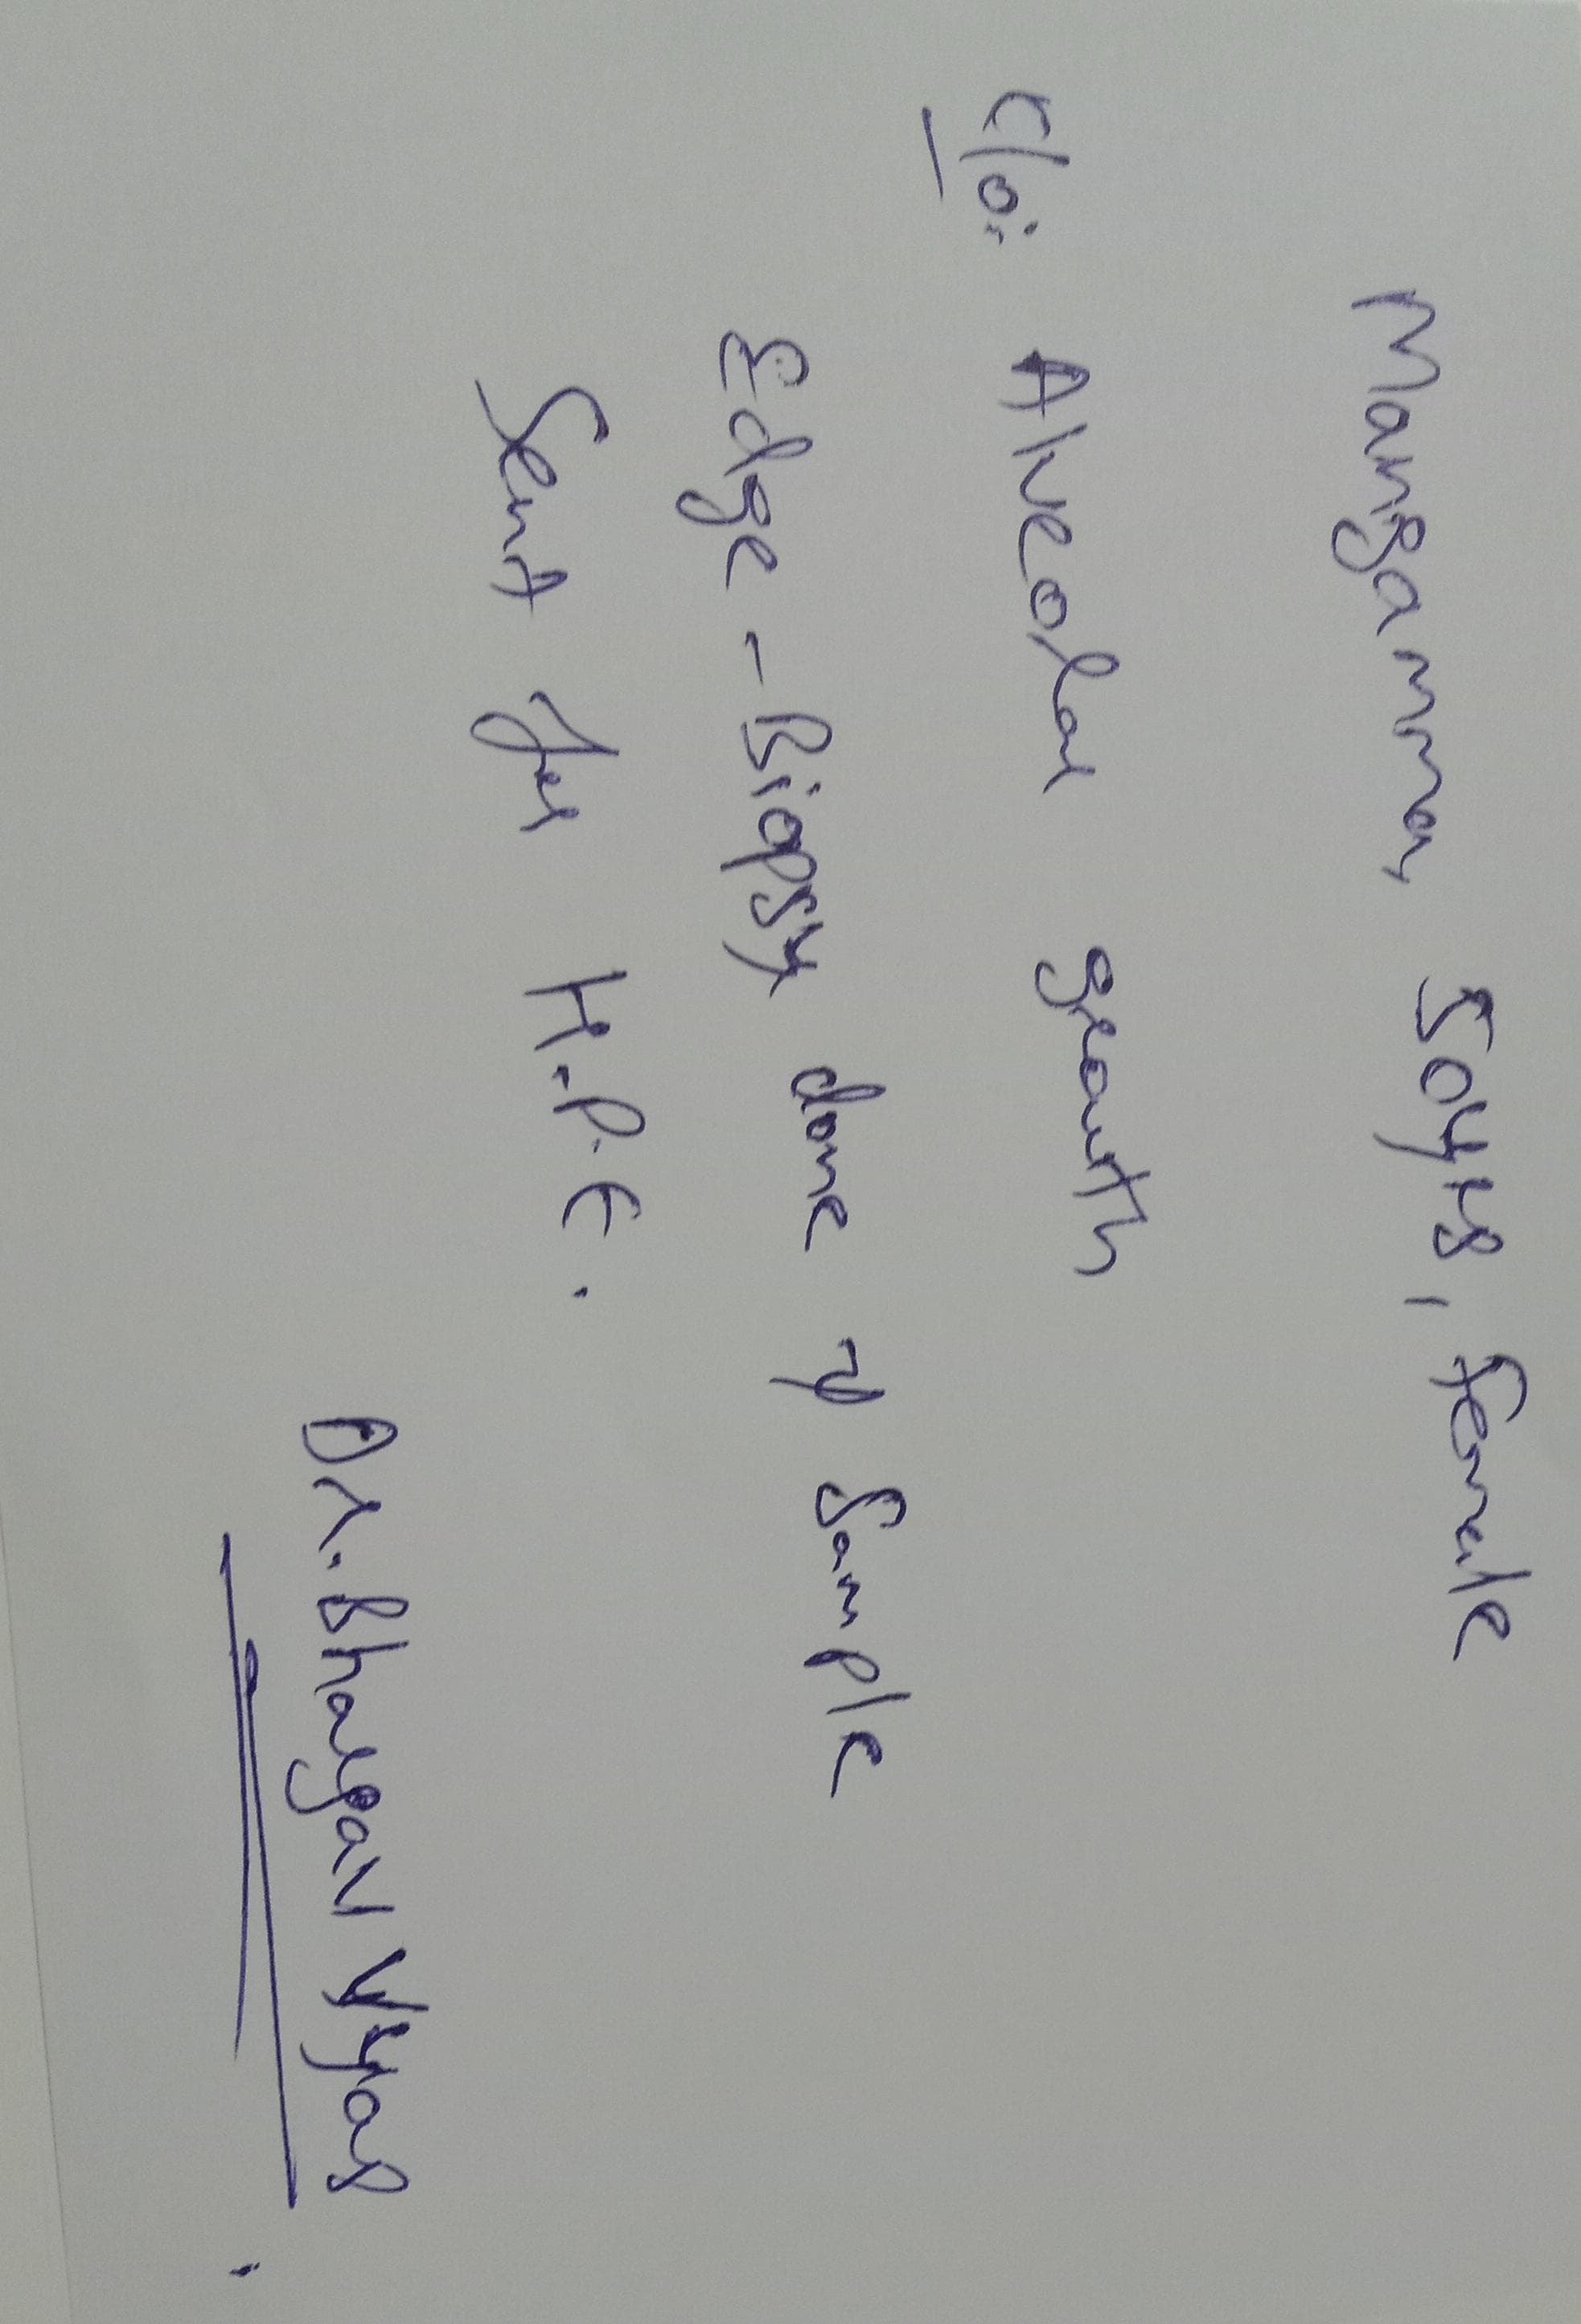 Mangamma, 50yrs, female
c/o: Alveolar growth
Edge - Biopsy done & Sample
Sent for H.P.E.
Dr. Bhargav Vyas